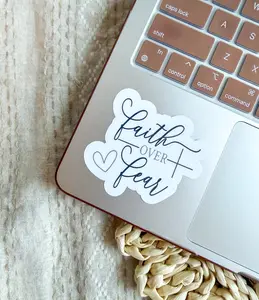 caps lock
A
S
shift
Z
X
fn
control
option
command
Faith
OVER
Fear